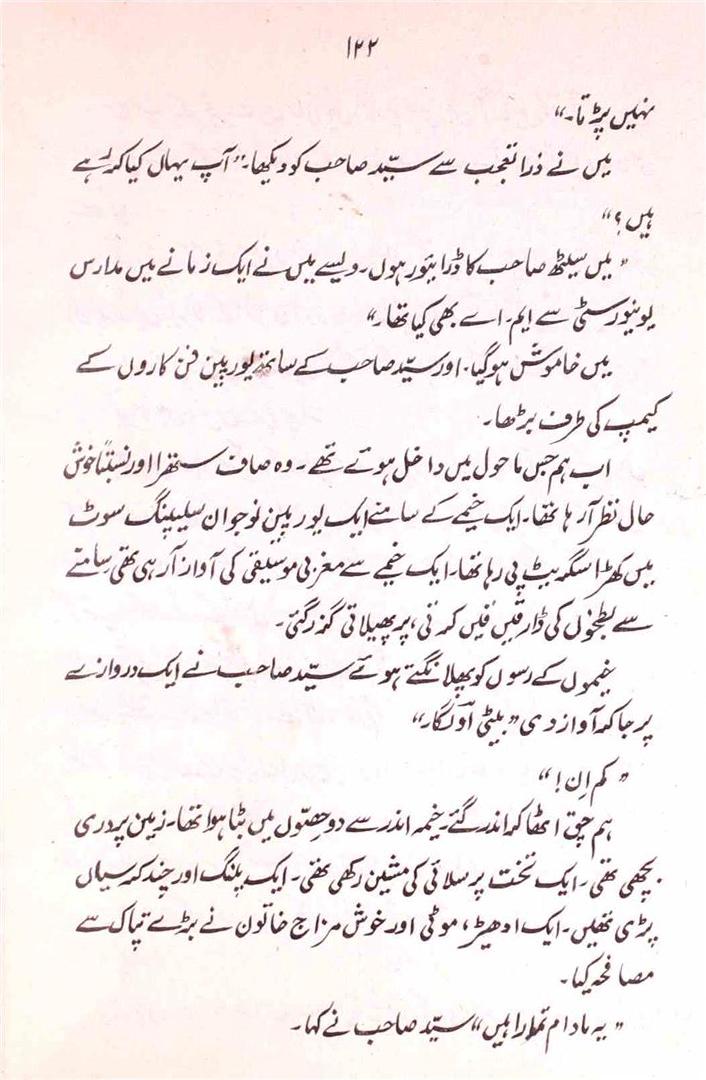 ۱۲۲
نہیں پڑتا۔“
میں نے ذرا تعجب سے سیّد صاحب کو دیکھا۔ ”آپ یہاں کیا کر رہے
ہیں؟“
”میں سیٹھ صاحب کا ڈرائیور ہوں۔ ویسے میں نے ایک زمانے میں مدراس
یونیورسٹی سے ایم۔ اے بھی کیا تھا۔“
میں خاموش ہو گیا۔ اور سیّد صاحب کے ساتھ یورپین فن کاروں کے
کیمپ کی طرف بڑھا۔
اب ہم جس ماحول میں داخل ہوئے تھے۔ وہ صاف ستھرا اور نسبتاً خوش
حال نظر آ رہا تھا۔ ایک خیمے کے سامنے ایک یورپین نوجوان سلیپنگ سوٹ
میں کھڑا سگریٹ پی رہا تھا۔ ایک خیمے سے مغربی موسیقی کی آواز آ رہی تھی سامنے
سے بطخوں کی ڈار قیں قیں کرتی، پر پھیلاتی گزر گئی۔
خیموں کے رسوں کو پھلانگتے ہوئے سیّد صاحب نے ایک دروازے
پر جا کر آواز دی ”بیٹی اولگا۔“
”کم اِن!“
ہم چق اٹھا کر اندر گئے۔ خیمہ اندر سے دو حصّوں میں بٹا ہوا تھا۔ زمین پر دری
بچھی تھی۔ ایک تخت پر سلائی کی مشین رکھی تھی۔ ایک پلنگ اور چند کرسیاں
پڑی تھیں۔ ایک ادھیڑ، موٹی اور خوش مزاج خاتون نے بڑے تپاک سے
مصافحہ کیا۔
”یہ مادام تمارا ہیں“ سیّد صاحب نے کہا۔